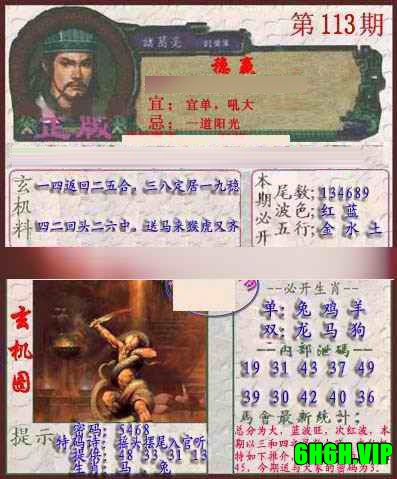 第113期
諸葛亮
穩贏
宜：宜单，吼大
忌：一道阳光
正版
玄机料
一四返回二五合。三八定居一九稳
四二回头二六中。送马来猴虎又齐
本期必开
尾数:134689
波色:红 蓝
五行:金 水 土
玄机图
必开生肖
单:兔 鸡 羊
双:龙 马 狗
内部泄码
19 31 43 37 49
14 26 38 50
39 30 42 40 36
馬會最新統計:
总分为大，蓝波旺，次红波，本
期以三和四
如下推介
45，今期送与大家的密码为3.
提示
密码: 5468
特码诗: 摇头摆尾入官听
提倍: 48 33 31 13
生肖: 马 兔
6HGH.VIP